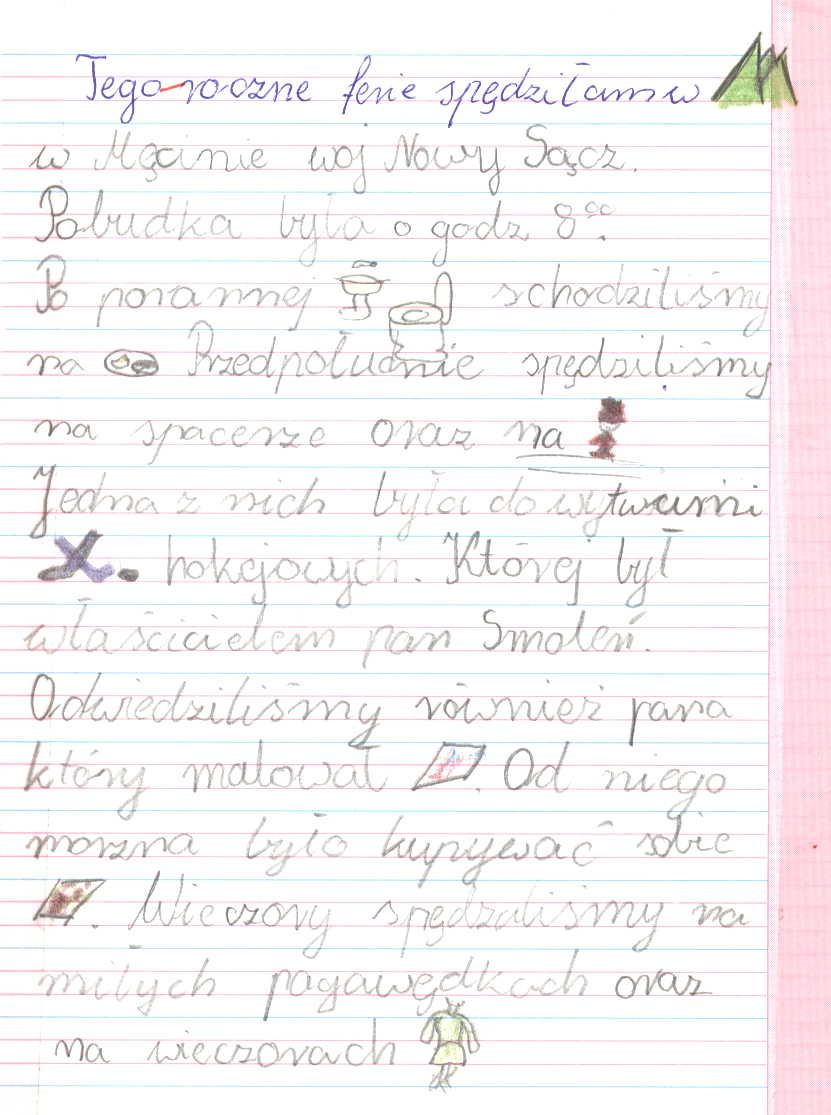 Tego-roczne ferie spędziłam w
w Męcinie woj Nowy Sącz.
Pobudka była o godz 8⁰⁰.
Po porannej schodziliśmy
na Przedpołudnie spędziliśmy
na spacerze oraz na
Jedna z nich była do wytwurni
hokejowych. Której był
właścicielem pan Smoleń.
Odwiedziliśmy również pana
który malował . Od niego
morzna było kupywać sobie
. Wieczory spędzaliśmy na
miłych pagawędkach oraz
na wieczorach